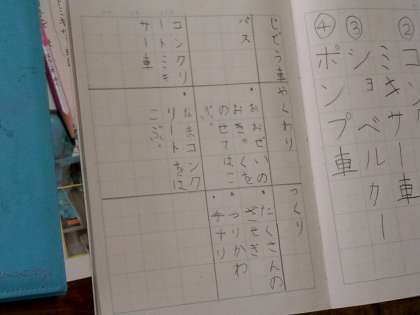 ②
ミキサー車
③
ショベルカー
④
ポンプ車
じどう車
やくわり
つくり
バス
・おおぜいの
おきゃくを
のせてはこ
ぶ。
・たくさんの
ざせき
・つりかわ
・手すり
コンクリ
ートミキ
サー車
・なまコンク
リートをは
こぶ。